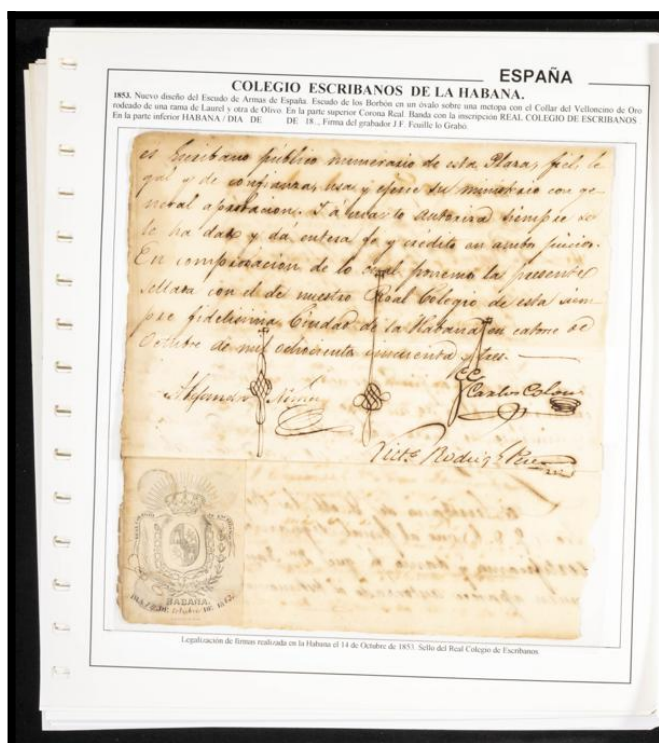 ESPAÑA
COLEGIO ESCRIBANOS DE LA HABANA.
1853. Nuevo diseño del Escudo de Armas de España. Escudo de los Borbón en un óvalo sobre una metopa con el Collar del Velloncino de Oro
rodeado de una rama de Laurel y otra de Olivo. En la parte superior Corona Real. Banda con la inscripción REAL COLEGIO DE ESCRIBANOS
En la parte inferior HABANA / DIA DE DE 18.. Firma del grabador J F. Feuille lo Grabó.
es Escribano público numerario de esta Plaza, fiel, le
gal y de confianza, usa y ejerce su ministerio con ge
neral aprobacion. Y á cuanto autoriza siempre se
le ha dado y dá entera fe y crédito en ambos juicios.
En comprobacion de lo cual ponemos la presente
sellada con el de nuestro Real Colegio de esta siem
pre fidelisima Ciudad de la Habana en catorce de
Octubre de mil ochocientos cincuenta y tres.
Carlos Colon
Rodrig. Perez
HABANA.
DIA DE Octubre DE
Legalización de firmas realizada en la Habana el 14 de Octubre de 1853. Sello del Real Colegio de Escribanos